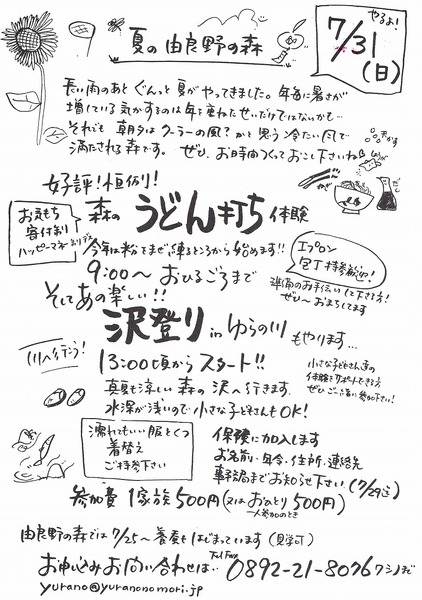 夏の由良野の森
やるよ!
7/31
(日)
長い雨のあと ぐんっと夏がやってきました。年毎に暑さが
増している気がするのは年を重ねたせいだけではないかも…
それでも 朝夕はクーラーの風?かと思う冷たい風で
満たされる森です。 ぜひ、お時間つくっておこし下さいね
天かす
ねぎ
だし
好評!恒例!
お気もち
寄付あり
ハッピーマネーありです
森の うどん打ち 体験
今年は粉をまぜ、練るところから始めます!!
9:00〜 おひるごろまで
エプロン
包丁持参歓迎!
準備のお手伝いして下さる方!
ぜひ〜おまちしてます
そしてあの楽しい!!
沢登り in ゆらの川 もやります…
川へ行こう!
13:00頃から スタート!!
真夏も涼しい 森の沢へ行きます。
水深が浅いので小さな子どもさんもOK!
小さな子どもさん達の
体験をサポートできる方
ぜひご一緒に参加下さい!
濡れてもいい服とくつ
着替え
ご持参下さい
保険に加入します
お名前・年令・住所・連絡先
事務局までお知らせ下さい(7/29迄)
参加費 1家族500円(又はおひとり500円)
一人参加のとき
由良野の森では7/25〜養蚕もはじまっています(見学可)
お申込みお問い合わせは… Tel Fax 0892-21-8076 ワシノまで
yurano@yuranonomori.jp